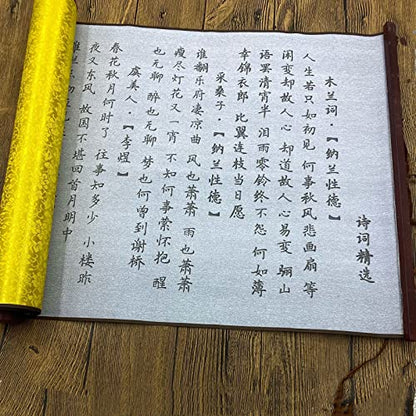 诗词精选
木兰词·【纳兰性德】
人生若只如初见 何事秋风悲画扇 等
闲变却故人心 却道故人心易变 骊山
语罢清宵半 泪雨零铃终不怨 何如薄
幸锦衣郎 比翼连枝当日愿
采桑子·【纳兰性德】
谁翻乐府凄凉曲 风也萧萧 雨也萧萧
瘦尽灯花又一宵 不知何事萦怀抱 醒
也无聊 醉也无聊 梦也何曾到谢桥
虞美人·【李煜】
春花秋月何时了 往事知多少 小楼昨
夜又东风 故国不堪回首月明中